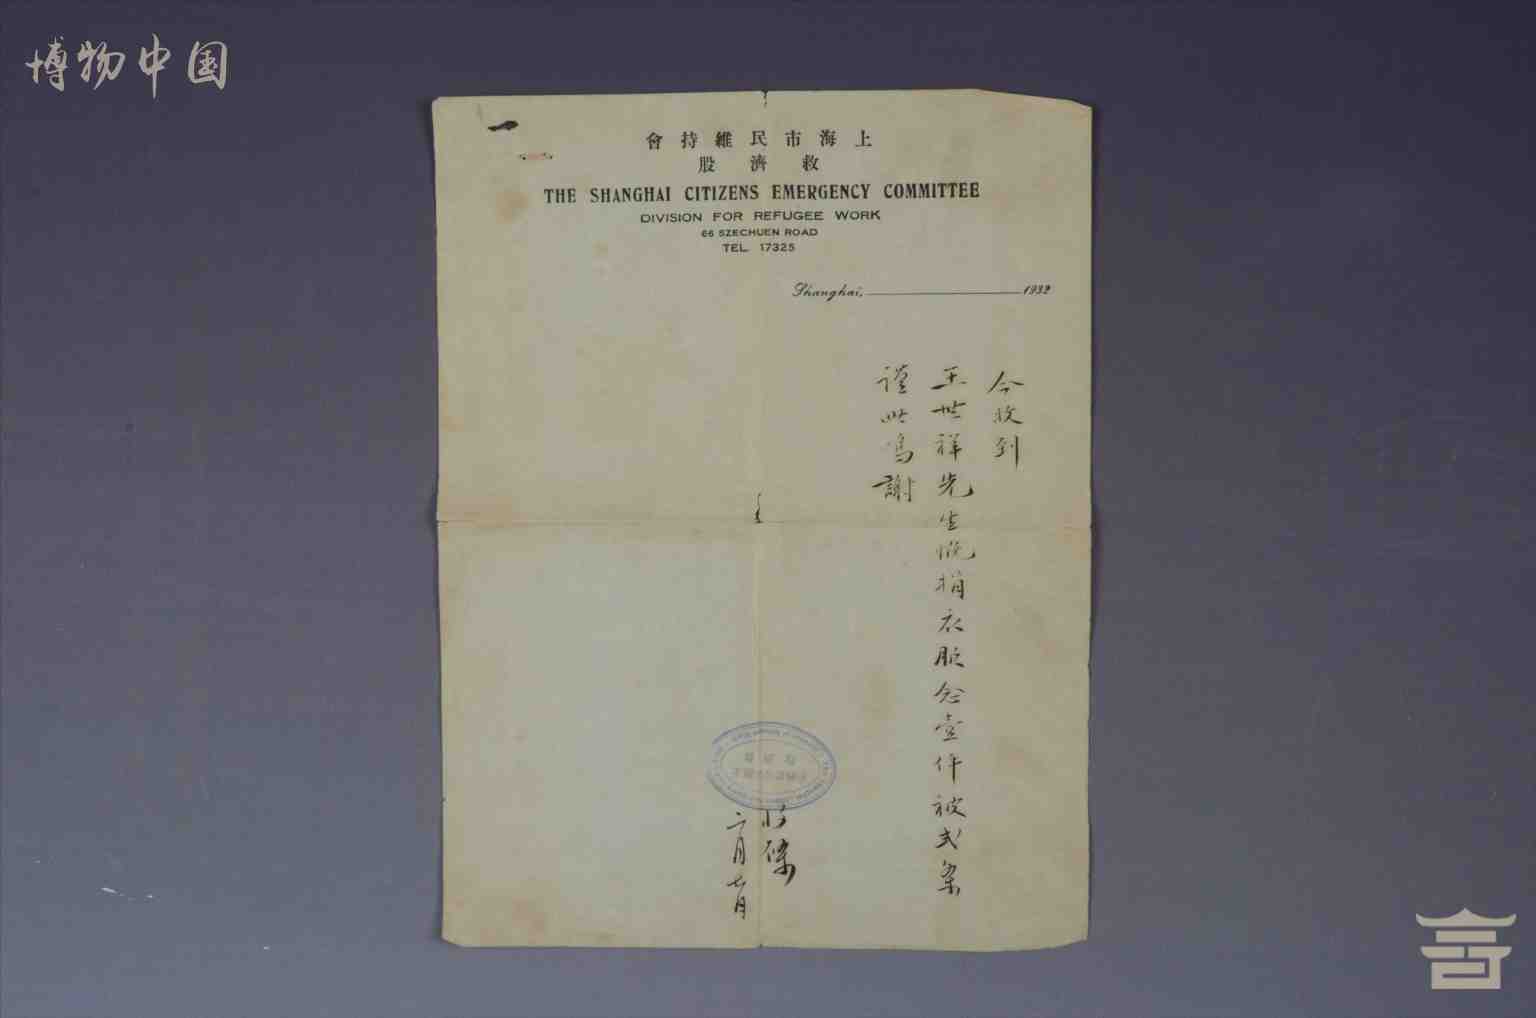 博物中国
上海市民維持會
救濟股
THE SHANGHAI CITIZENS EMERGENCY COMMITTEE
DIVISION FOR REFUGEE WORK
66 SZECHUEN ROAD
TEL. 17325
Shanghai, 1932
今收到
王世祥先生慨捐衣服念壹件被式條
謹此鳴謝
收條
二月七日